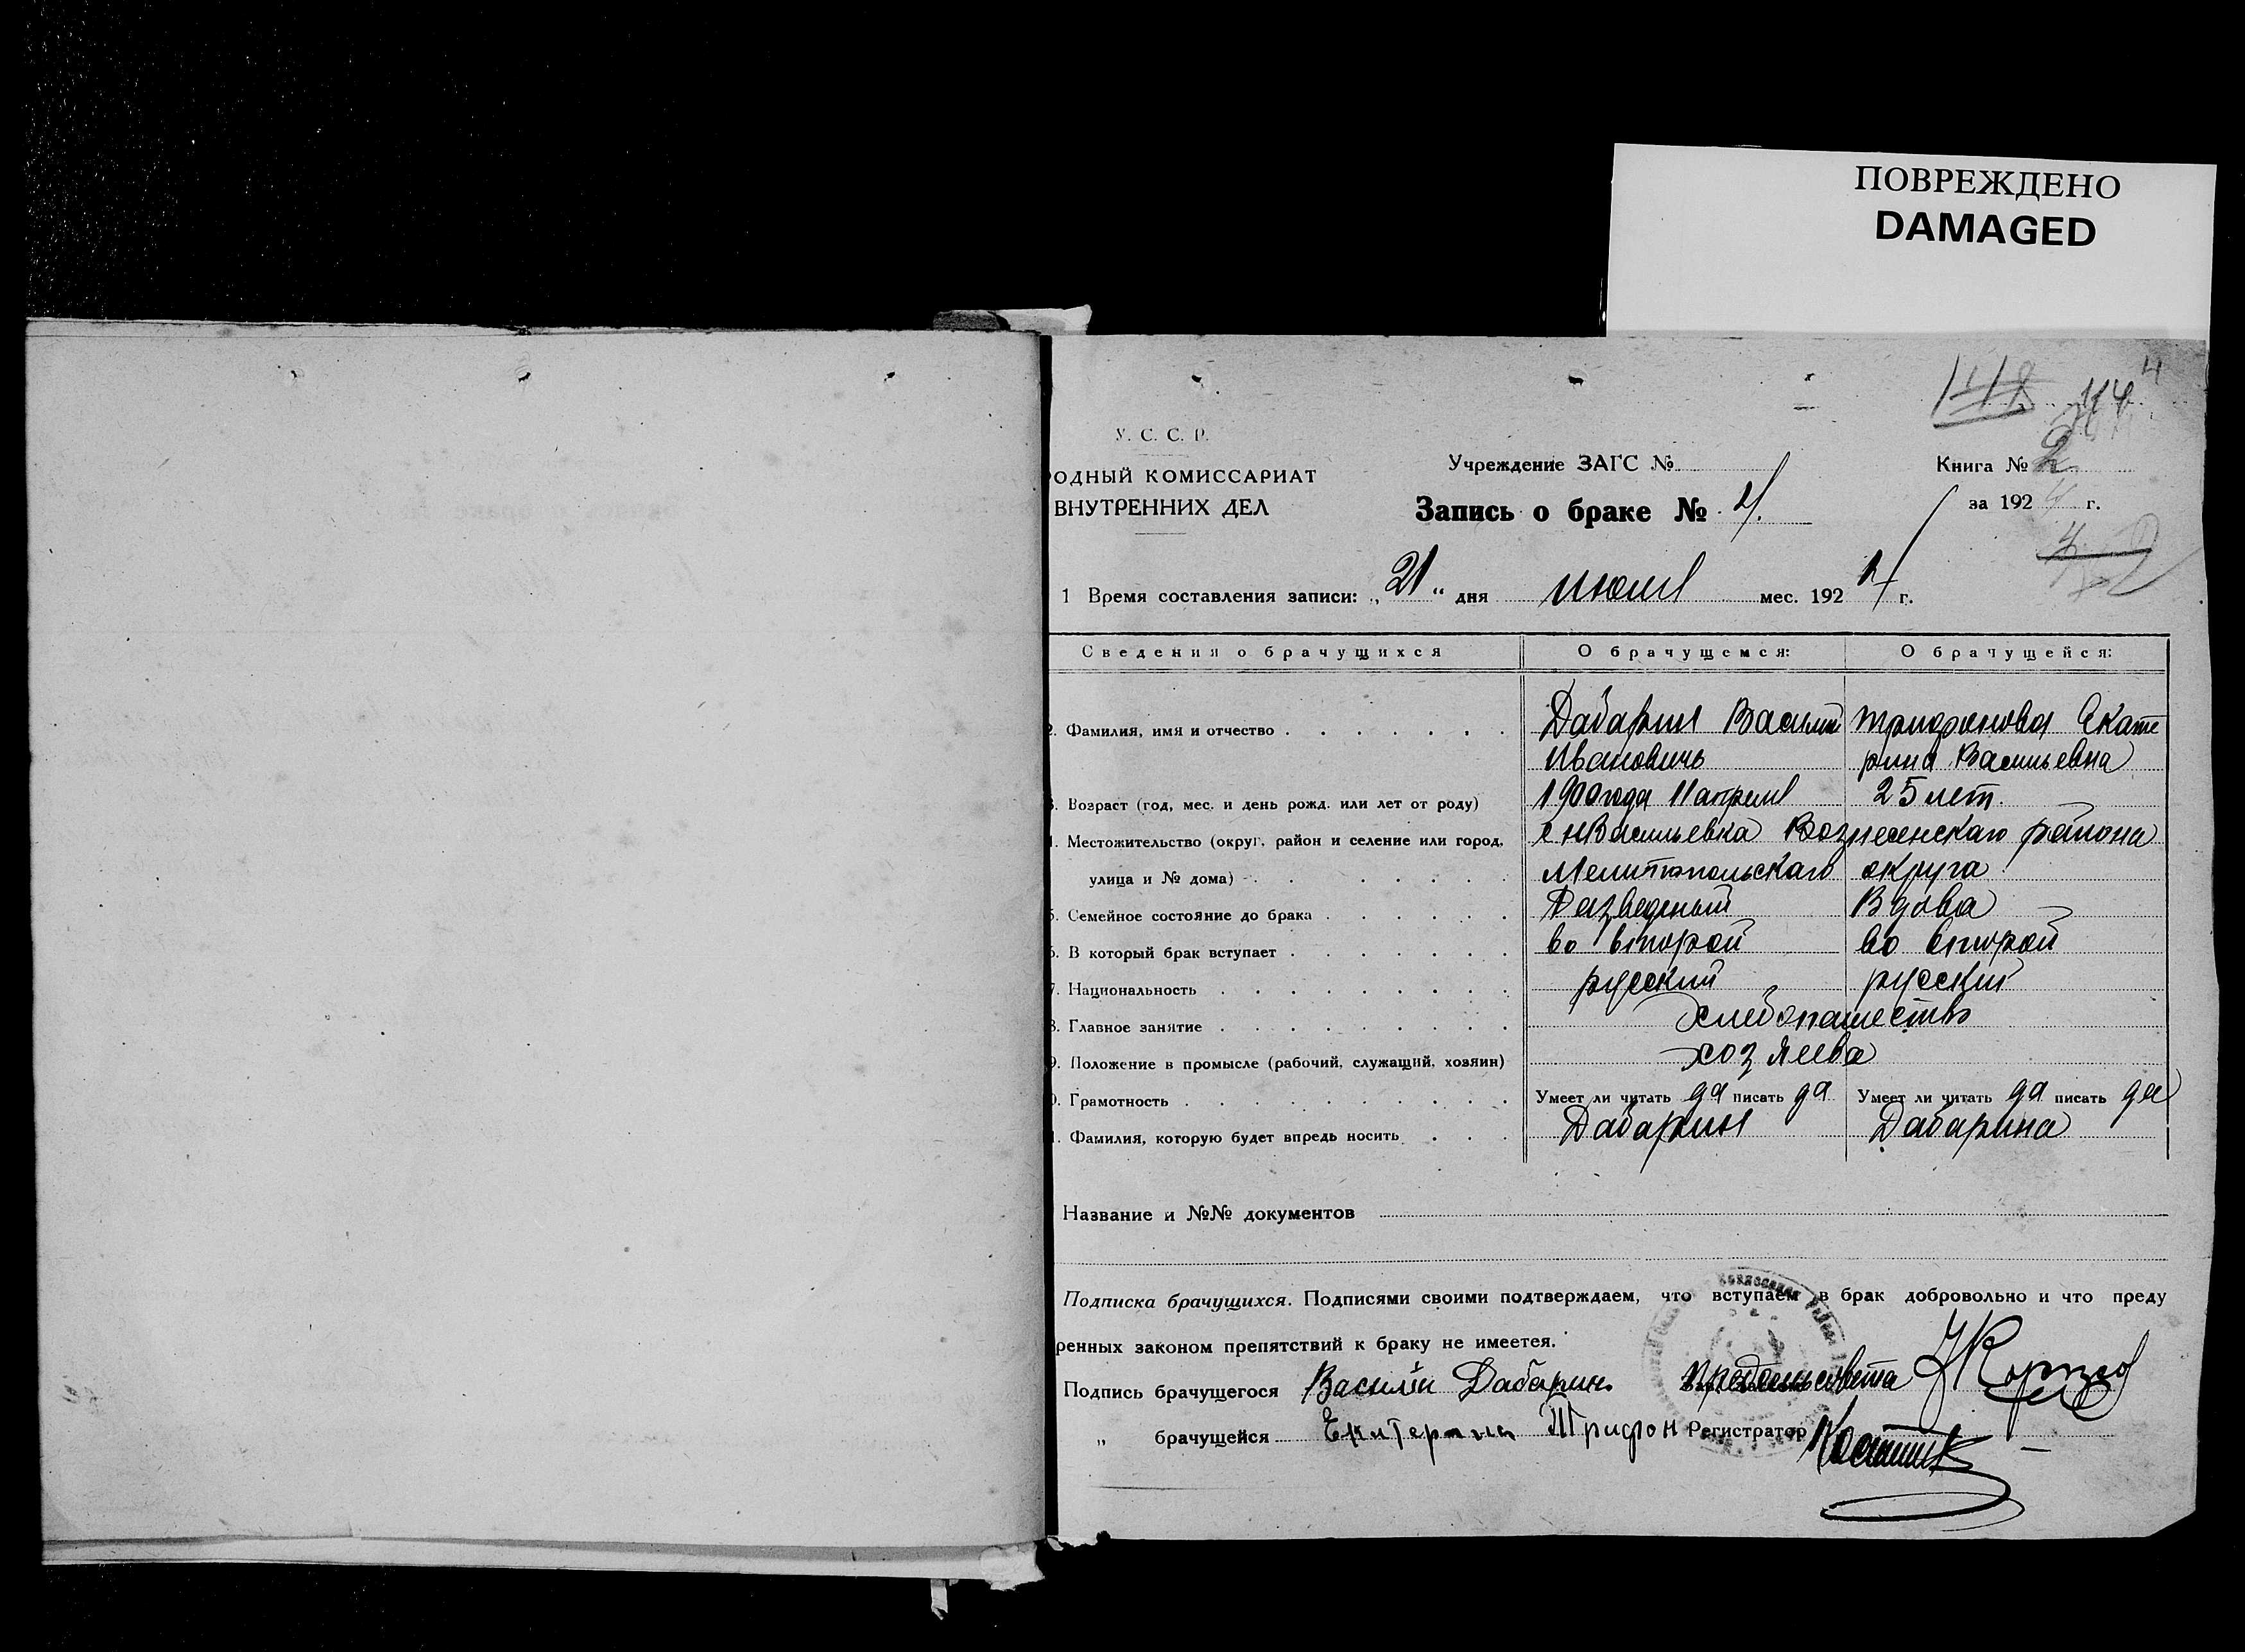 ПОВРЕЖДЕНО
DAMAGED
114
У. С. С. Р.
ОДНЫЙ КОМИССАРИАТ
ВНУТРЕННИХ ДЕЛ
Учреждение ЗАГС №
Запись о браке № 4.
Книга № 2
за 1924 г.
1 Время составления записи: „21“ дня июля мес. 1924 г.
Сведения о брачущихся О брачущемся: О брачущейся:
2. Фамилия, имя и отчество Дабарин Василий Трифонова Екате
Ивановичь рина Васильевна
3. Возраст (год, мес. и день рожд. или лет от роду) 1900 года 11 апреля 25 лет.
4. Местожительство (округ, район и селение или город, с нВасильевка Вознесенскаго района
улица и № дома) Мелитопольскаго округа
5. Семейное состояние до брака Разведеный Вдова
6. В который брак вступает во второй во второй
7. Национальность русский русский
8. Главное занятие Хлебопашество
9. Положение в промысле (рабочий, служащий, хозяин) хозяева
0. Грамотность Умеет ли читать да писать да Умеет ли читать да писать да
1. Фамилия, которую будет впредь носить Дабарин Дабарина
Название и №№ документов
Подписка брачущихся. Подписями своими подтверждаем, что вступаем в брак добровольно и что преду
ренных законом препятствий к браку не имеется.
Подпись брачущегося Василий Дабарин Предсельсовета
„ брачущейся Екатерина Трифон Регистратор